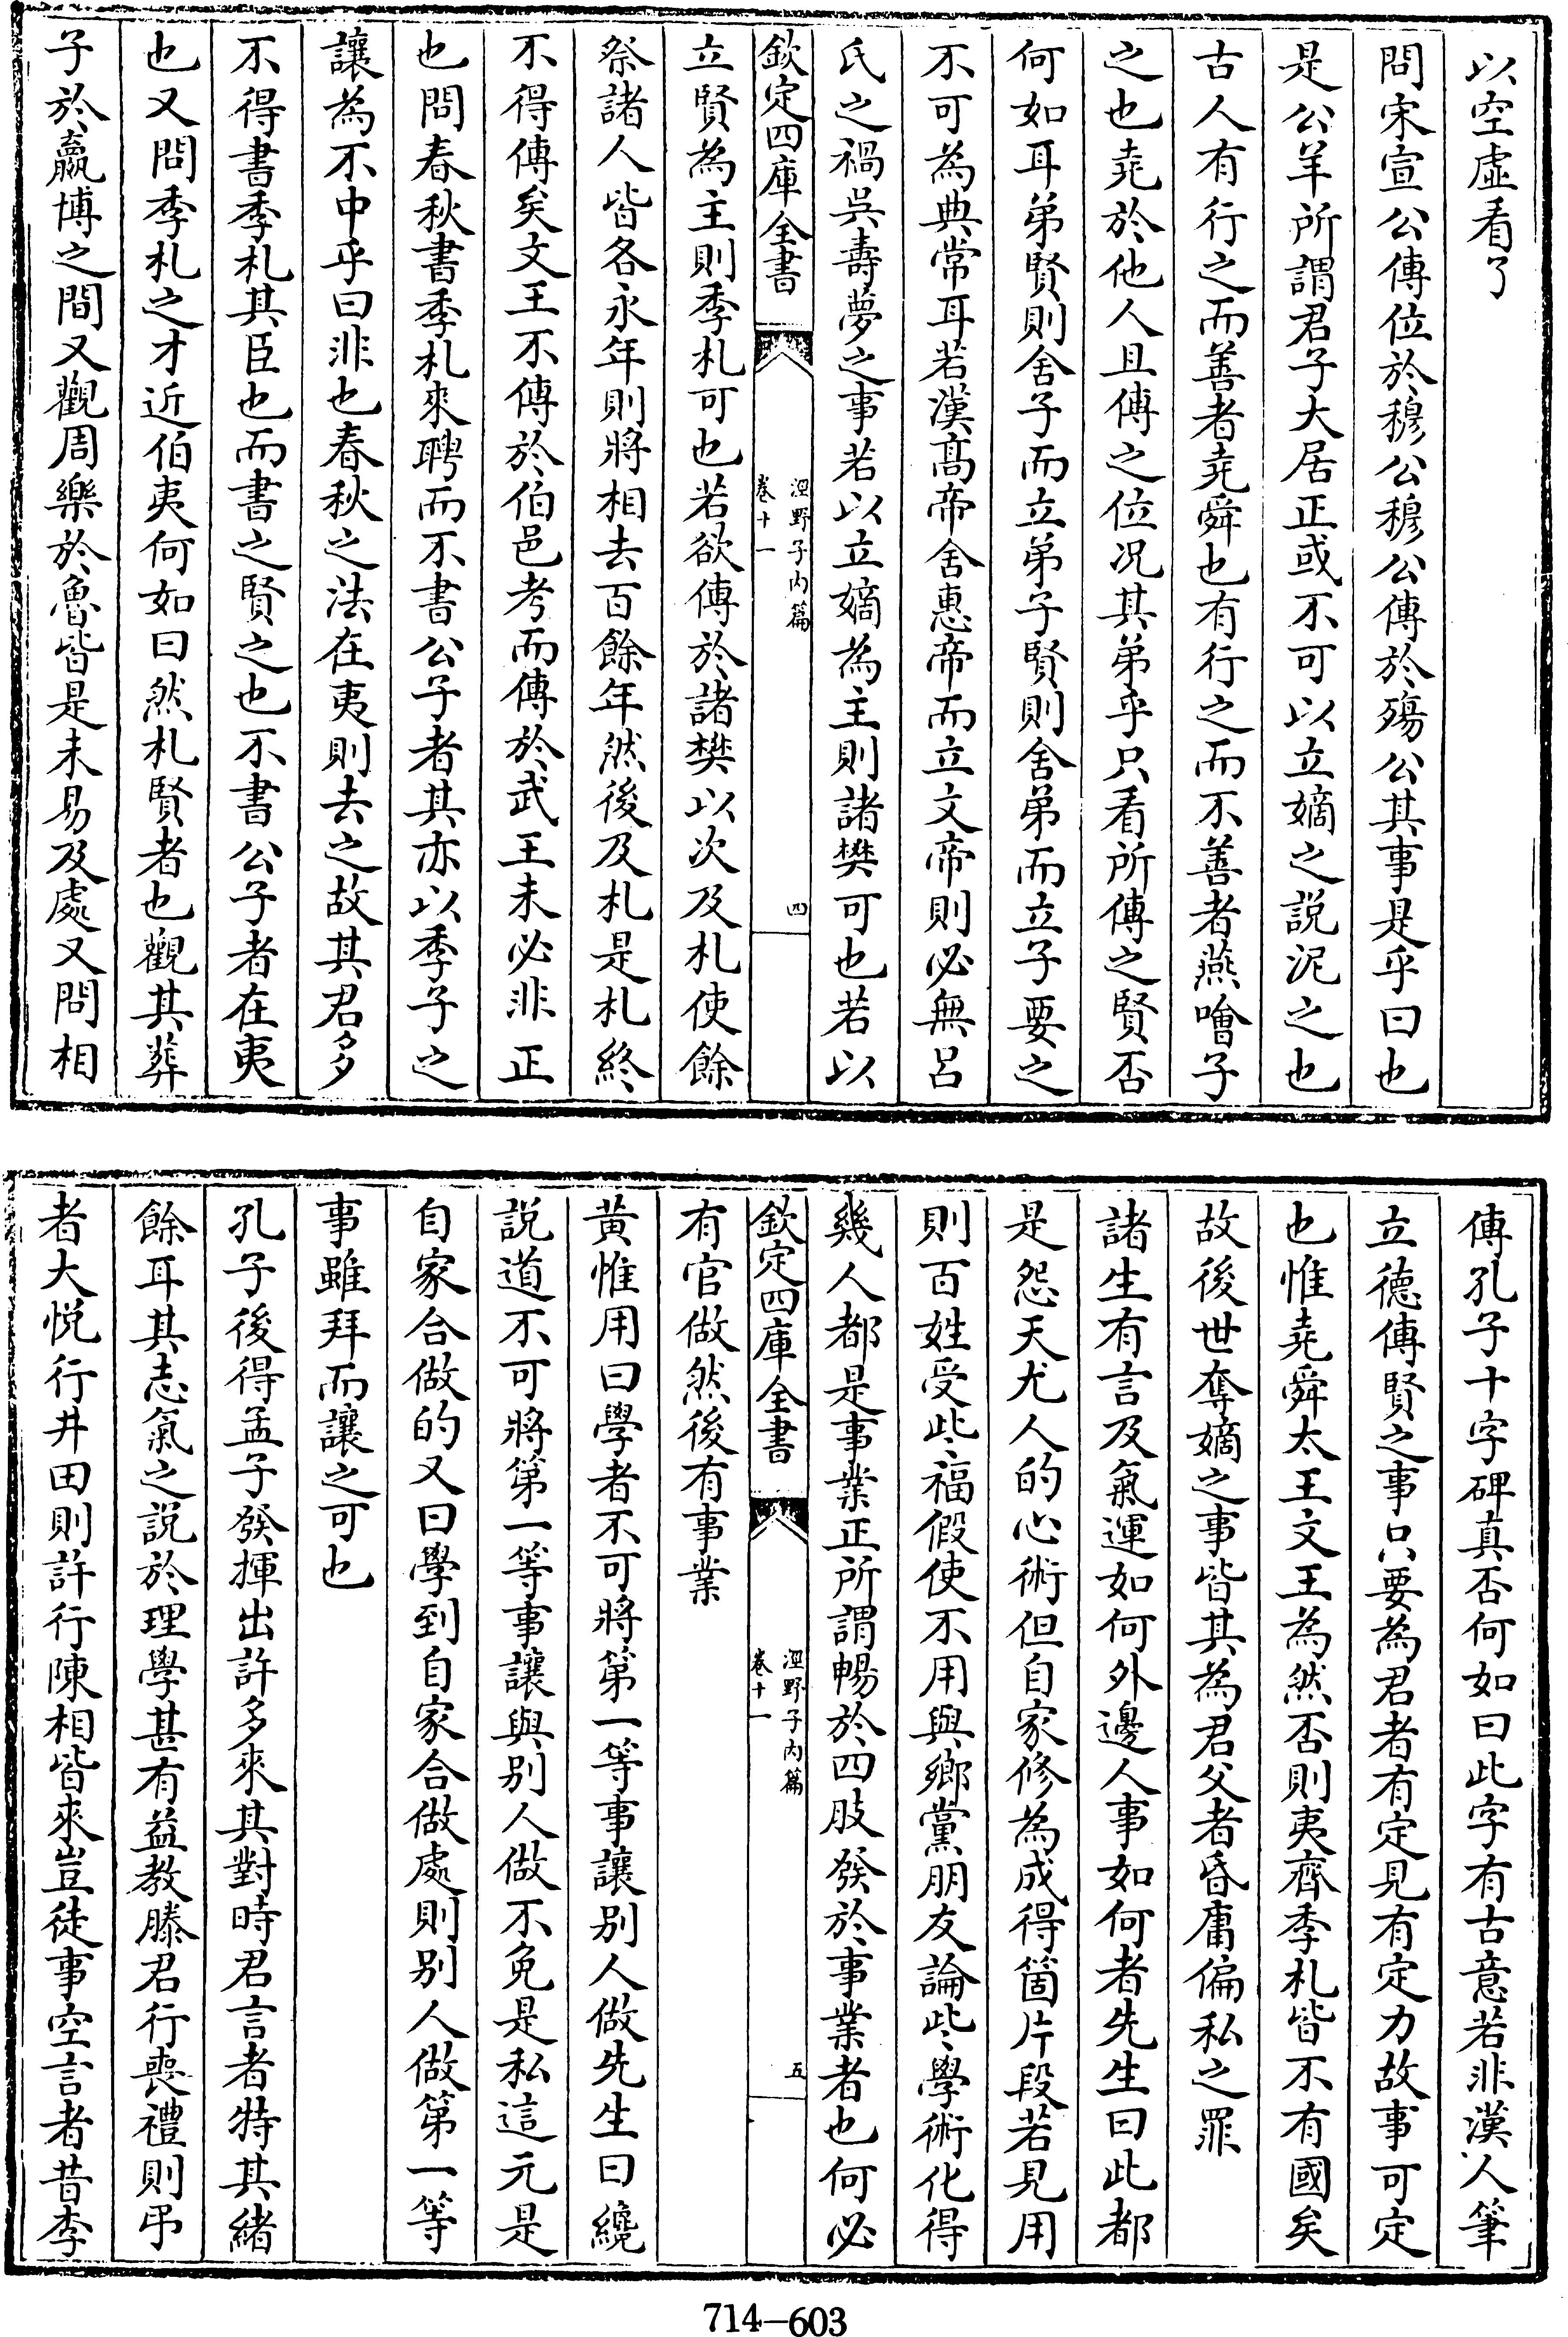 以空虛看了
問宋宣公傳位於穆公穆公傳於殤公其事是乎曰也
是公羊所謂君子大居正或不可以立嫡之説泥之也
古人有行之而善者堯舜也有行之而不善者燕噲子
之也堯於他人且傳之位况其弟乎只看所傳之賢否
何如耳弟賢則舍子而立弟子賢則舍弟而立子要之
不可為典常耳若漢髙帝舍惠帝而立文帝則必無呂
氏之禍吳壽夢之事若以立嫡為主則諸樊可也若以
欽定四庫全書
涇野子內篇
卷十一
四
立賢為主則季札可也若欲傳於諸樊以次及札使餘
祭諸人皆各永年則將相去百餘年然後及札是札終
不得傳矣文王不傳於伯邑考而傳於武王未必非正
也問春秋書季札來聘而不書公子者其亦以季子之
讓為不中乎曰非也春秋之法在夷則去之故其君多
不得書季札其臣也而書之賢之也不書公子者在夷
也又問季札之才近伯夷何如曰然札賢者也觀其葬
子於嬴博之間又觀周樂於魯皆是未易及處又問相
傳孔子十字碑真否何如曰此字有古意若非漢人筆
立德傳賢之事只要為君者有定見有定力故事可定
也惟堯舜太王文王為然否則夷齊季札皆不有國矣
故後世奪嫡之事皆其為君父者昏庸偏私之罪
諸生有言及氣運如何外邊人事如何者先生曰此都
是怨天尤人的心術但自家修為成得箇片段若見用
則百姓受此福假使不用與鄉黨朋友論此學術化得
幾人都是事業正所謂暢於四肢發於事業者也何必
欽定四庫全書
涇野子內篇
卷十一
五
有官做然後有事業
黄惟用曰學者不可將第一等事讓别人做先生曰纔
說道不可將第一等事讓與别人做不免是私這元是
自家合做的又曰學到自家合做處則别人做第一等
事雖拜而讓之可也
孔子後得孟子發揮出許多來其對時君言者特其緒
餘耳其志氣之説於理學甚有益教滕君行喪禮則弔
者大悦行井田則許行陳相皆來豈徒事空言者昔李
714—603